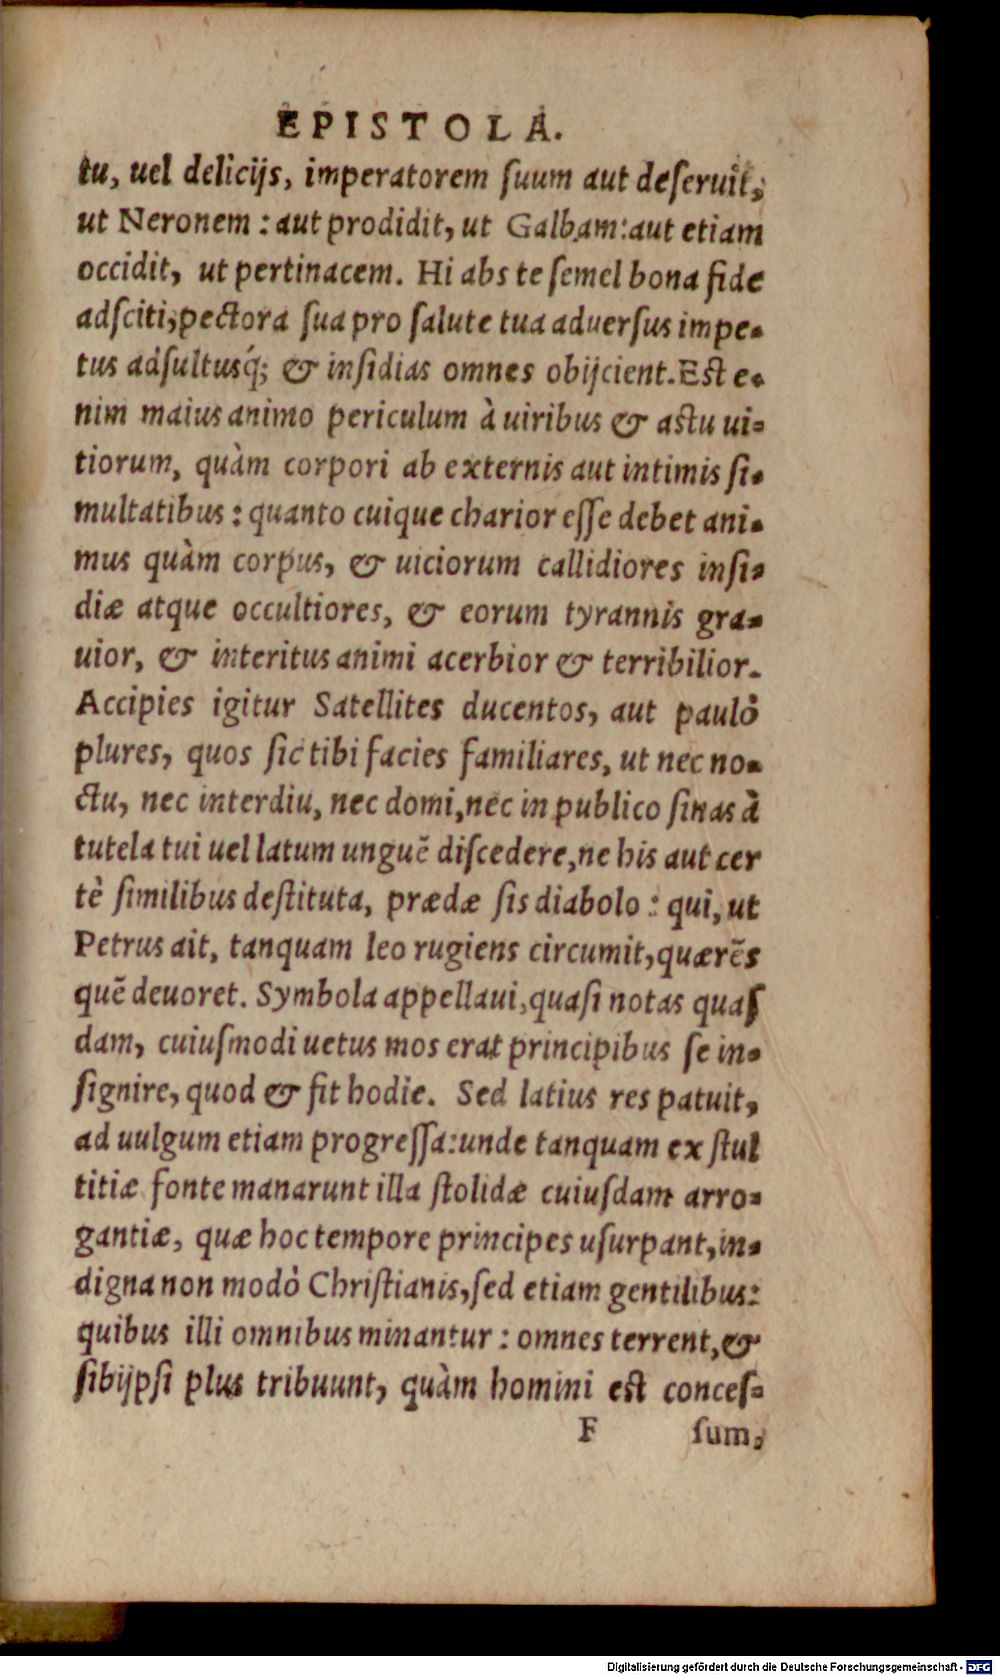 EPISTOLA.
tu, uel delicijs, imperatorem ſuum aut deſeruit,
ut Neronem : aut prodidit, ut Galbam: aut etiam
occidit, ut pertinacem. Hi abs te ſemel bona fide
adſciti, pectora ſua pro ſalute tua aduerſus impe-
tus adſultusq́; & inſidias omnes obijcient. Eſt e-
nim maius animo periculum à uiribus & aſtu ui-
tiorum, quàm corpori ab externis aut intimis ſi-
multatibus : quanto cuique charior eſſe debet ani-
mus quàm corpus, & uiciorum callidiores inſi-
diæ atque occultiores, & eorum tyrannis gra-
uior, & interitus animi acerbior & terribilior.
Accipies igitur Satellites ducentos, aut paulò
plures, quos ſic tibi facies familiares, ut nec no-
ctu, nec interdiu, nec domi, nec in publico ſinas à
tutela tui uel latum unguē diſcedere, ne his aut cer
tè ſimilibus deſtituta, prædæ ſis diabolo : qui, ut
Petrus ait, tanquam leo rugiens circumit, quærēs
quē deuoret. Symbola appellaui, quaſi notas quaſ
dam, cuiuſmodi uetus mos erat principibus ſe in-
ſignire, quod & fit hodie. Sed latius res patuit,
ad uulgum etiam progreſſa: unde tanquam ex ſtul
titiæ fonte manarunt illa ſtolidæ cuiuſdam arro-
gantiæ, quæ hoc tempore principes uſurpant, in-
digna non modò Chriſtianis, ſed etiam gentilibus:
quibus illi omnibus minantur : omnes terrent, &
ſibijpſi plus tribuunt, quàm homini eſt conceſ-
F ſum,
Digitalisierung gefördert durch die Deutsche Forschungsgemeinschaft - DFG